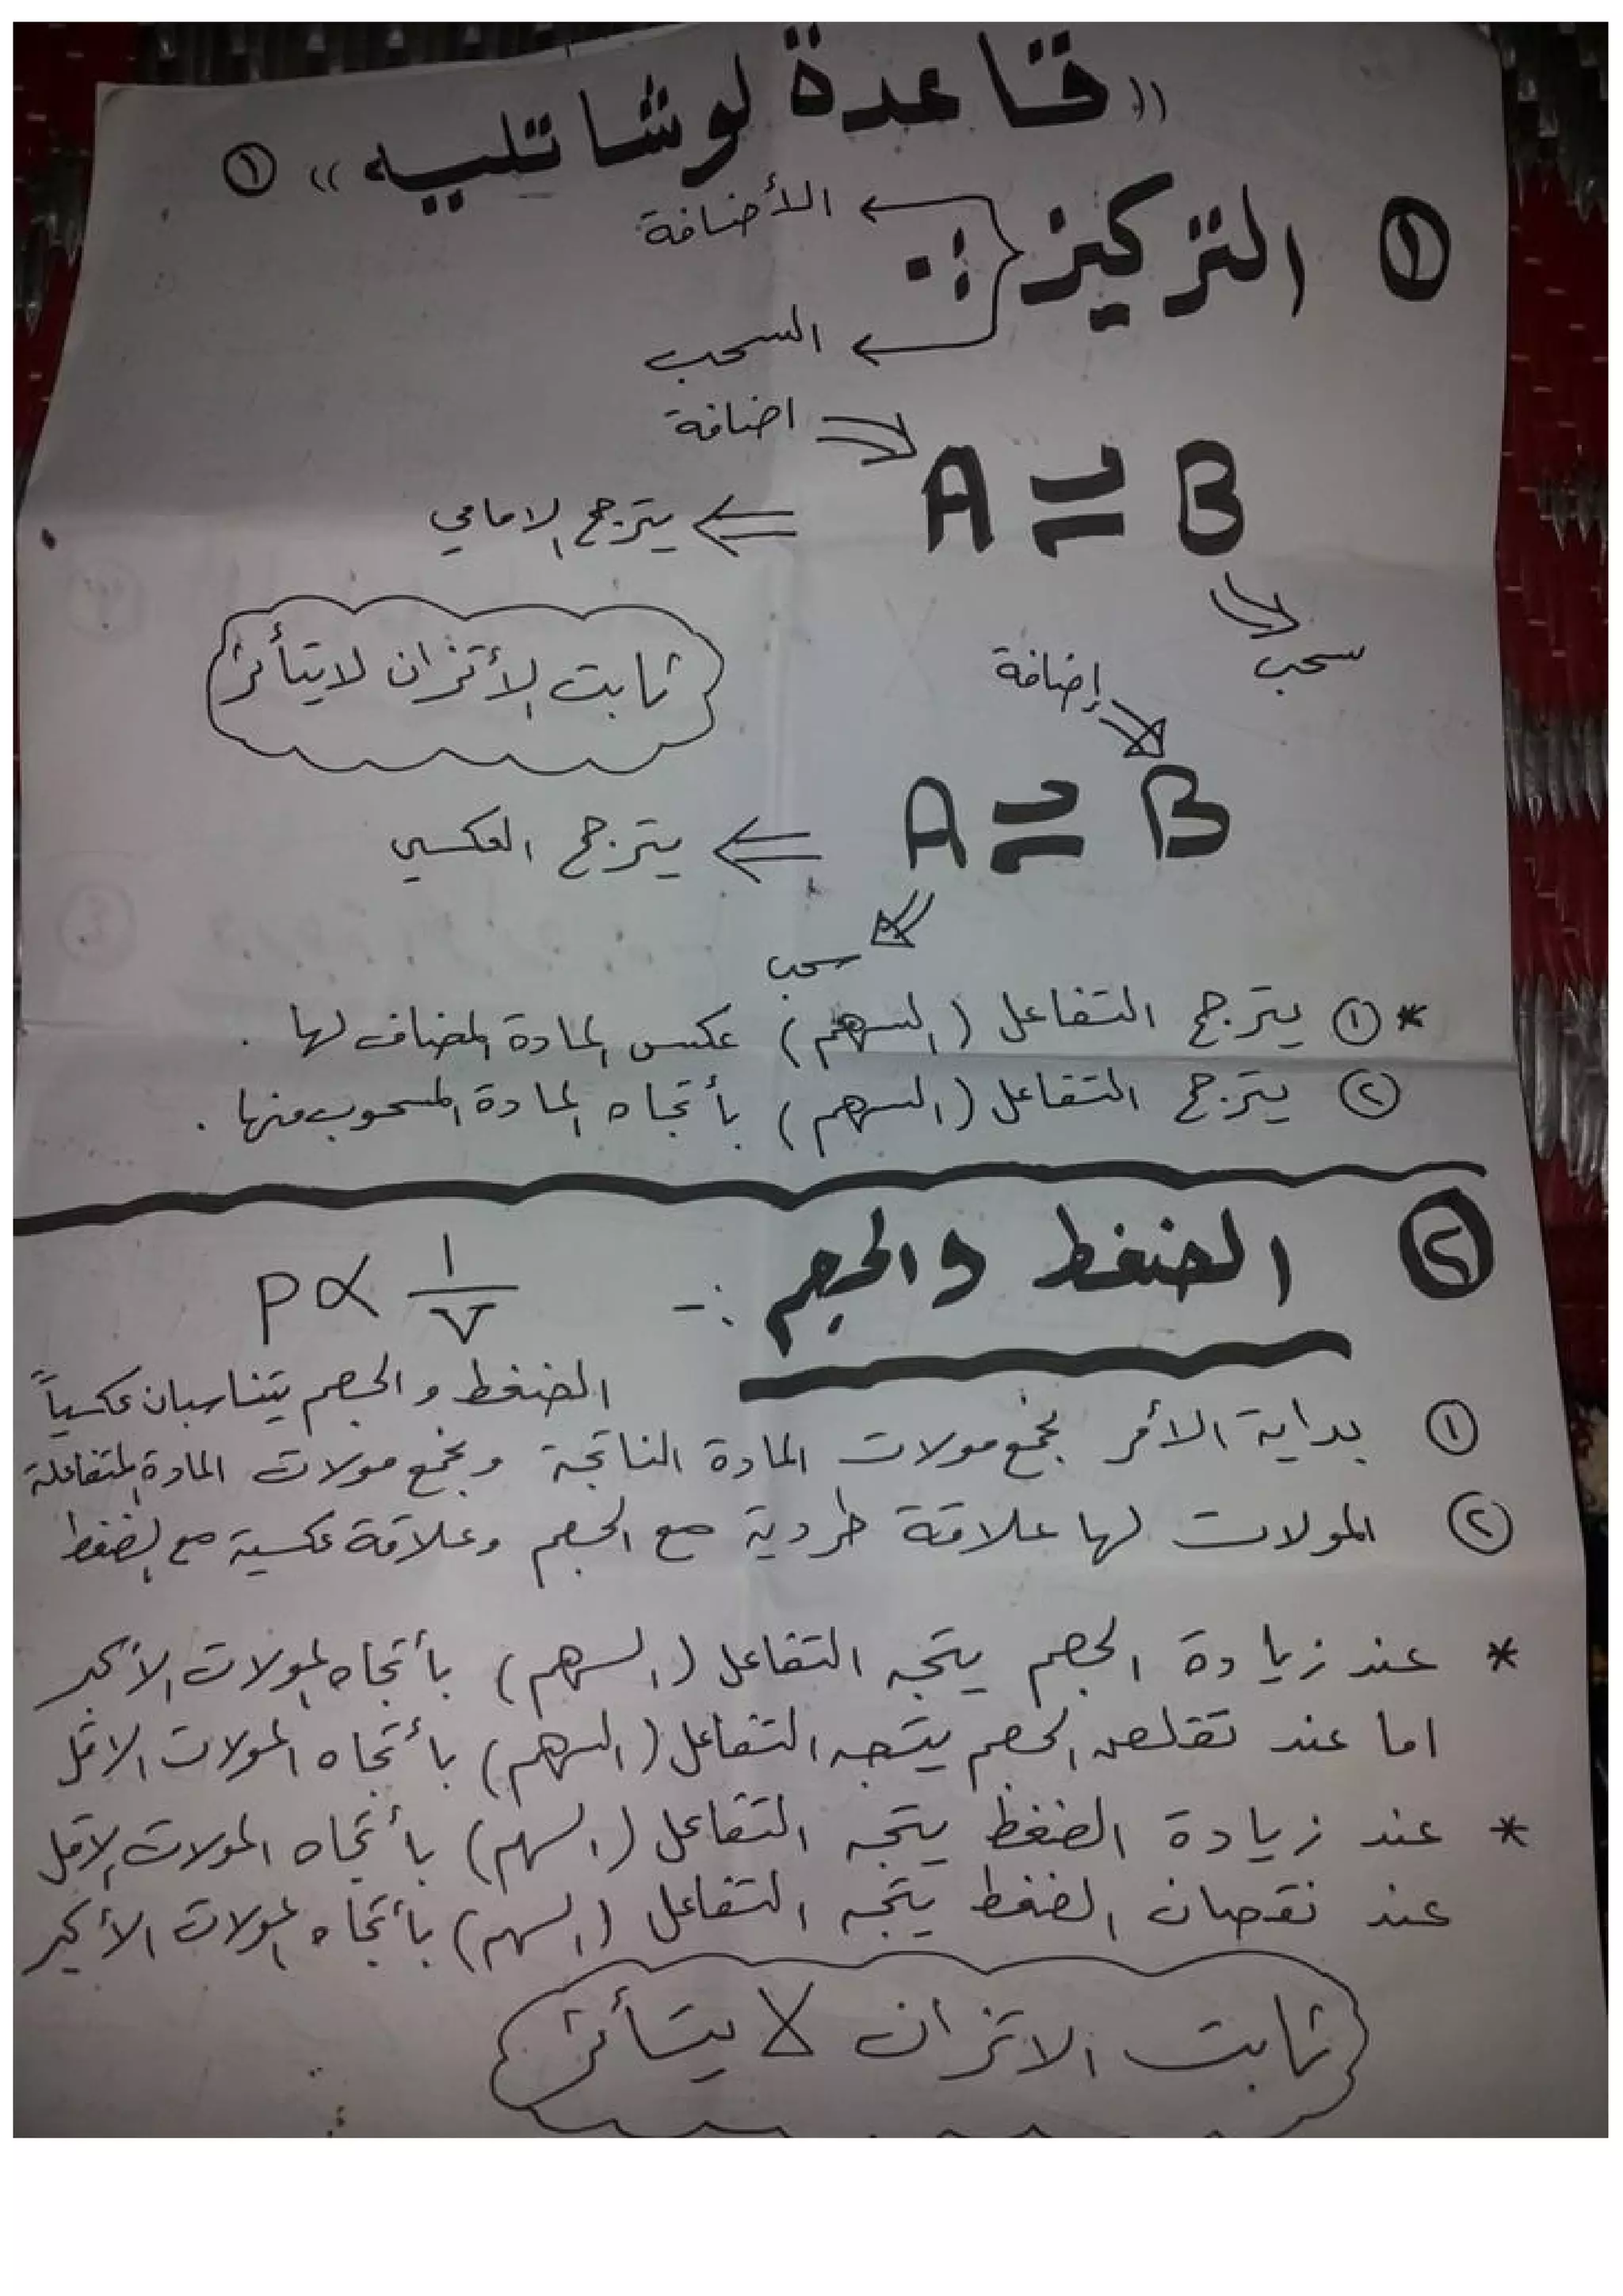 «قاعدة لوشاتليه» ①
① التركيز :.
الأضافة
السحب
اضافة
A ⇌ B
يترجح الامامي
سحب
ثابت الأتزان لايتأثر
إضافة
A ⇌ B
يترجح العكسي
سحب
* ① يترجح التفاعل (السهم) عكس المادة المضاف لها .
② يترجح التفاعل (السهم) بأتجاه المادة المسحوب منها .
② الضغط والحجم :-
P ∝ 1/V
الضغط والحجم يتناسبان عكسياً
① بداية الأمر نجمع مولات المادة الناتجة ونجمع مولات المادة المتفاعلة
② المولات لها علاقة طردية مع الحجم وعلاقة عكسية مع الضغط
* عند زيادة الحجم يتجه التفاعل (السهم) بأتجاه المولات الأكبر
اما عند تقلص الحجم يتجه التفاعل (السهم) بأتجاه المولات الاقل
* عند زيادة الضغط يتجه التفاعل (السهم) بأتجاه المولات الاقل
عند نقصان الضغط يتجه التفاعل (السهم) بأتجاه المولات الأكبر
ثابت الاتزان لا يتأثر